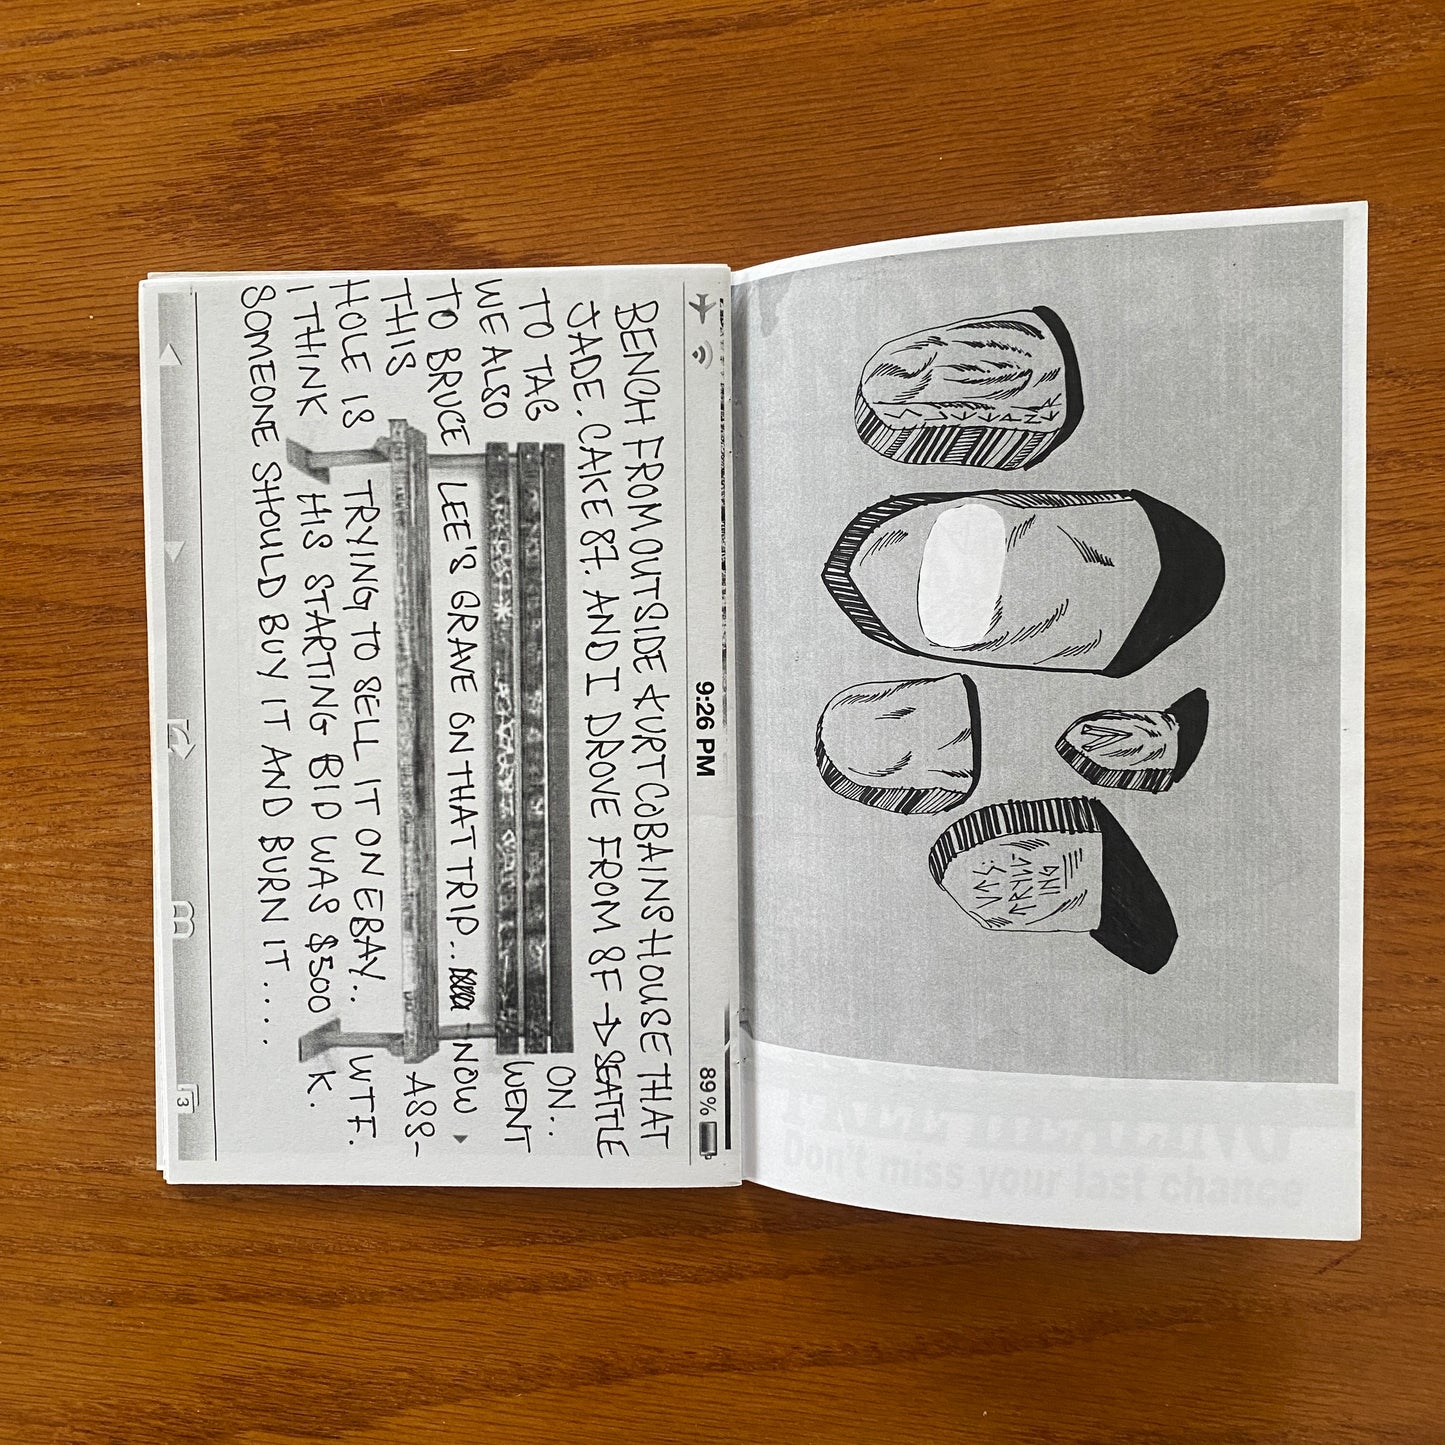 9:26 PM 89%
BENCH FROM OUTSIDE KURT COBAINS HOUSE THAT
JADE. CAKE 87. AND I DROVE FROM SF → SEATTLE
TO TAG ON..
WE ALSO WENT
TO BRUCE LEE'S GRAVE ON THAT TRIP.. NOW
THIS ASS-
HOLE IS TRYING TO SELL IT ON EBAY.. WTF.
I THINK HIS STARTING BID WAS $500 K.
SOMEONE SHOULD BUY IT AND BURN IT....
3
Don't miss your last chance